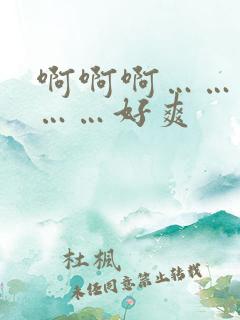 啊啊啊……
……好爽
杜楓
未经同意禁止转载